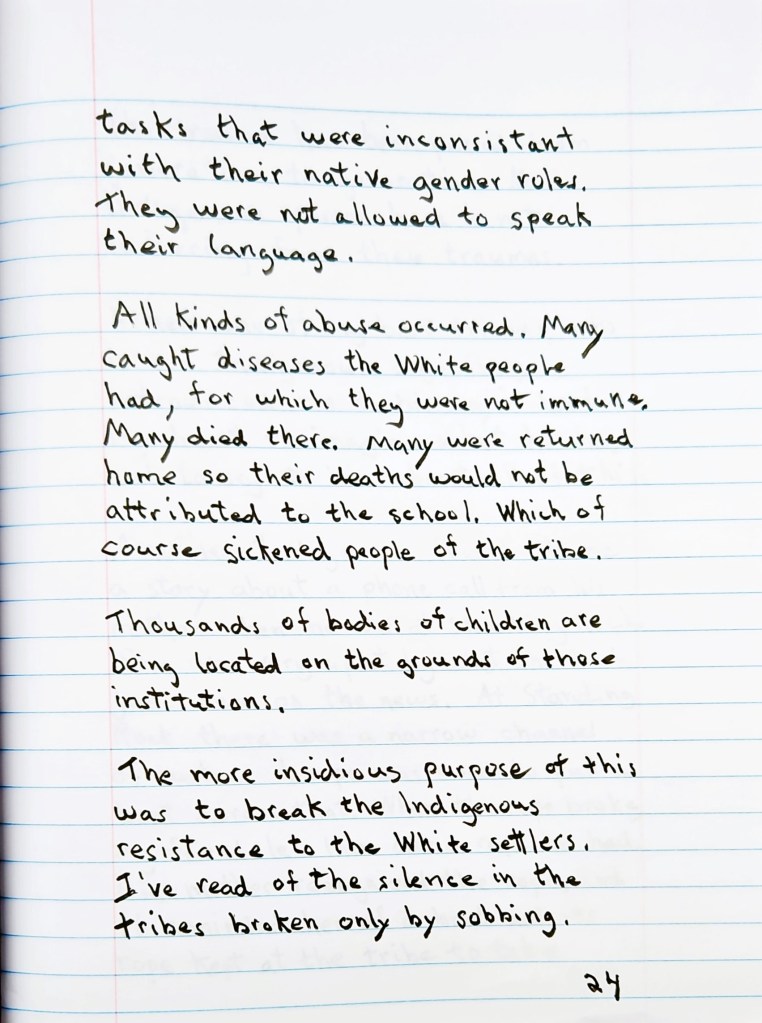 tasks that were inconsistant
with their native gender roles.
They were not allowed to speak
their language.
All kinds of abuse occurred. Many
caught diseases the White people
had, for which they were not immune.
Many died there. Many were returned
home so their deaths would not be
attributed to the school. Which of
course sickened people of the tribe.
Thousands of bodies of children are
being located on the grounds of those
institutions.
The more insidious purpose of this
was to break the Indigenous
resistance to the White settlers.
I've read of the silence in the
tribes broken only by sobbing.
24